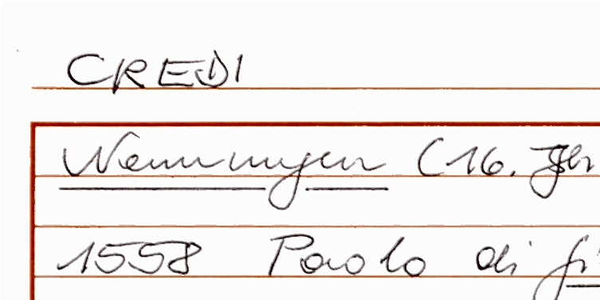 CREDI
Nennungen (16. Jh
1558 Paolo di